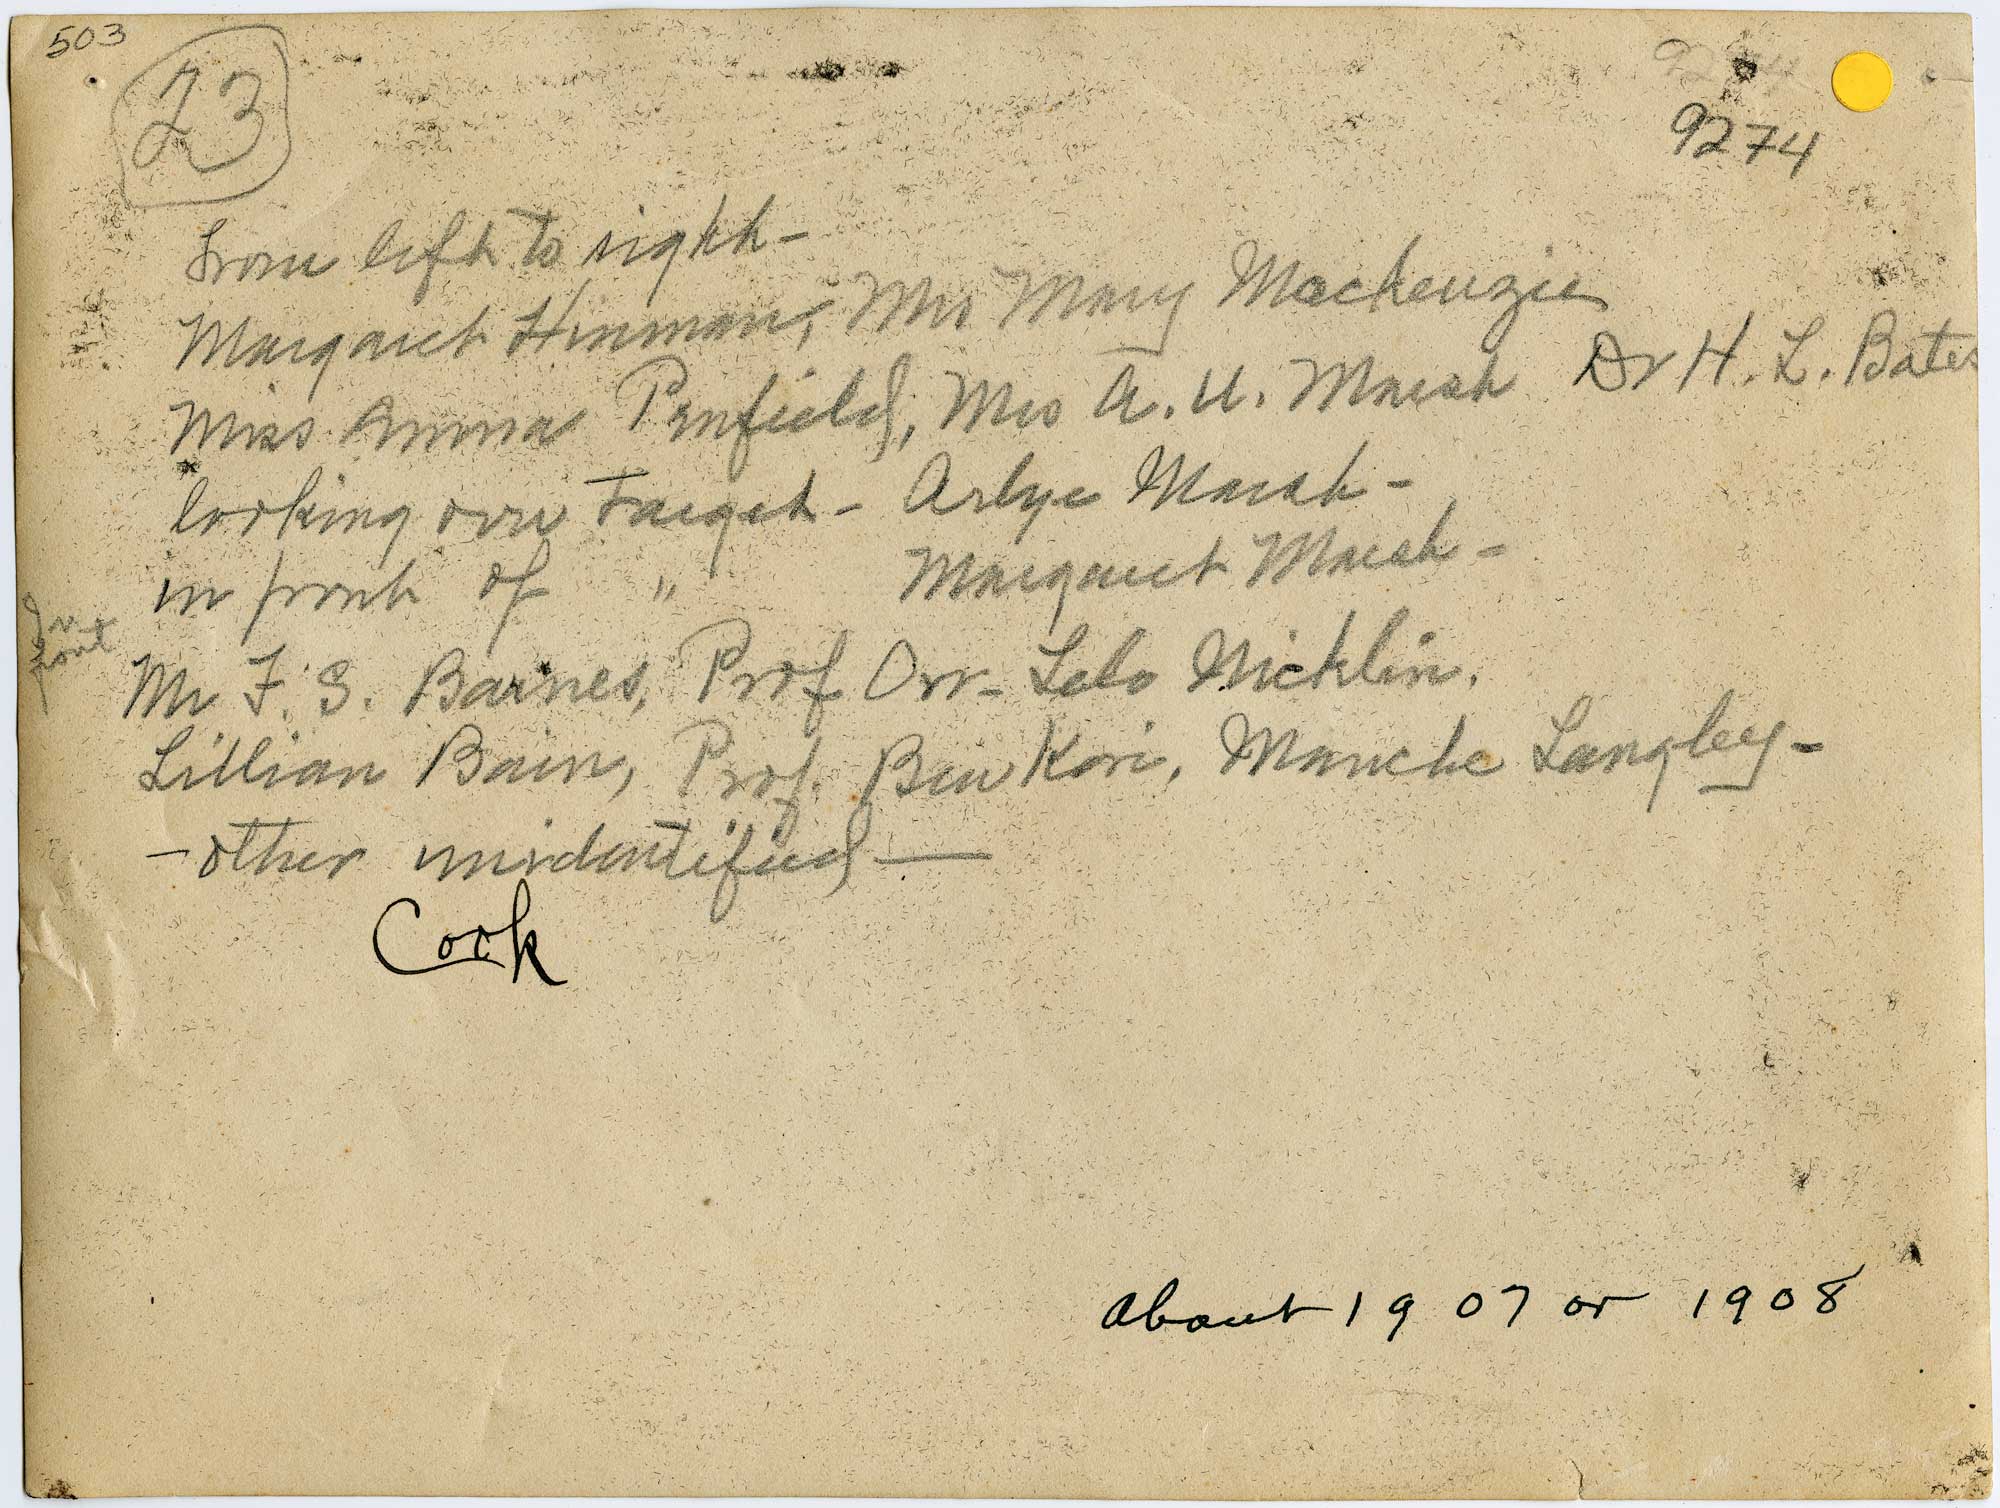 503
23
9274
9274
From left to right-
Margaret Hinman, Mrs Mary Mackenzie
Miss Anna Penfield, Mrs A. U. Marsh Dr H. L. Bates
looking over Target - Arlye Marsh -
in front of " Margaret Marsh -
In front
Mr F. S. Barnes, Prof Orr - Lolo Nicklin.
Lillian Bain, Prof. Ben Kori, Manche Langley -
- other unidentified -
Cook
About 1907 or 1908